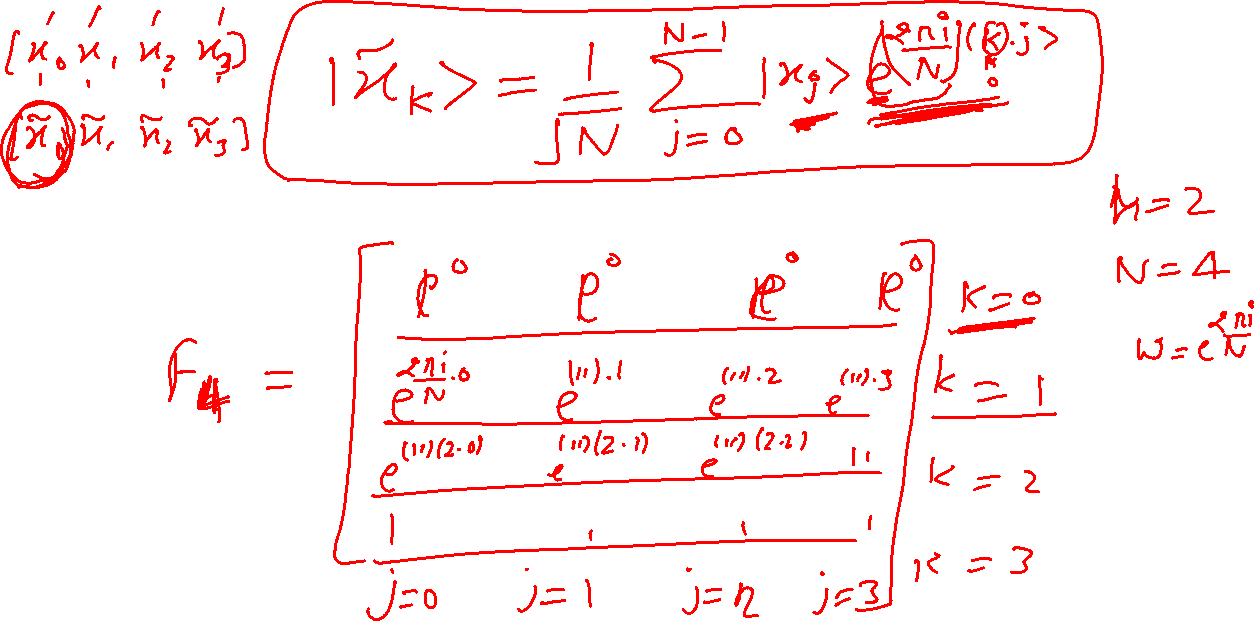 [x₀ x₁ x₂ x₃]
[x̃₀ x̃₁ x̃₂ x̃₃]
|x̃_K> = 1/√N ∑_{j=0}^{N-1} |x_j> e^{(2πi/N)(k).j>
n=2
N=4
W=e^{2πi/N}
F₄ =
e⁰ e⁰ e⁰ e⁰ K=0
e^{2πi/N.0} e^{(11).1} e^{(11).2} e^{(11).3} k=1
e^{(11)(2.0)} e^{(11)(2.1)} e^{(11)(2.2)} 11 k=2
1 1 1 1 K=3
j=0 j=1 j=2 j=3